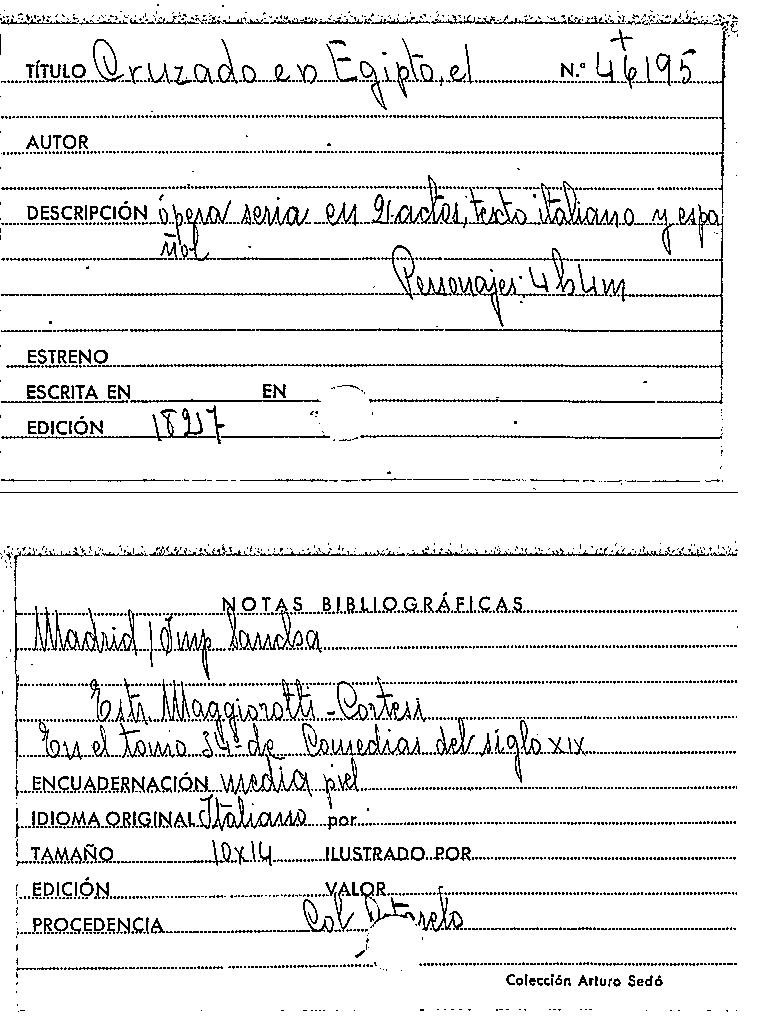 TÍTULO Cruzado en Egipto, el N.º 46195
AUTOR
DESCRIPCIÓN ópera seria en 2 actos, texto italiano y espa
ñol
Personajes: 4h 4m
ESTRENO
ESCRITA EN EN
EDICIÓN 1827
NOTAS BIBLIOGRÁFICAS
Madrid / Imp
Estr. Maggiorotti - Cortesi
En el tomo 34º de Comedias del siglo XIX
ENCUADERNACIÓN media piel
IDIOMA ORIGINAL Italiano por
TAMAÑO 10x14 ILUSTRADO POR
EDICIÓN VALOR
PROCEDENCIA Col
Colección Arturo Sedó